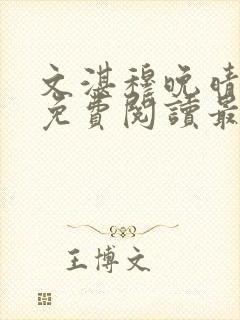 文湛穆晚晴
免費閱讀最
王博文